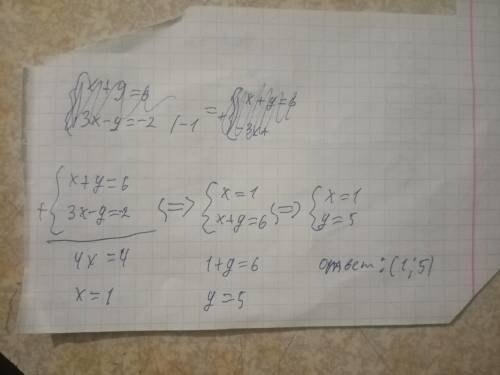 x+y=6
3x-y=-2 |-1 = + x+y=6
-3x+
+ { x+y=6
3x-y=-2 <=> { x=1
x+y=6 <=> { x=1
y=5
4x=4 1+y=6 ответ: (1;5)
x=1 y=5